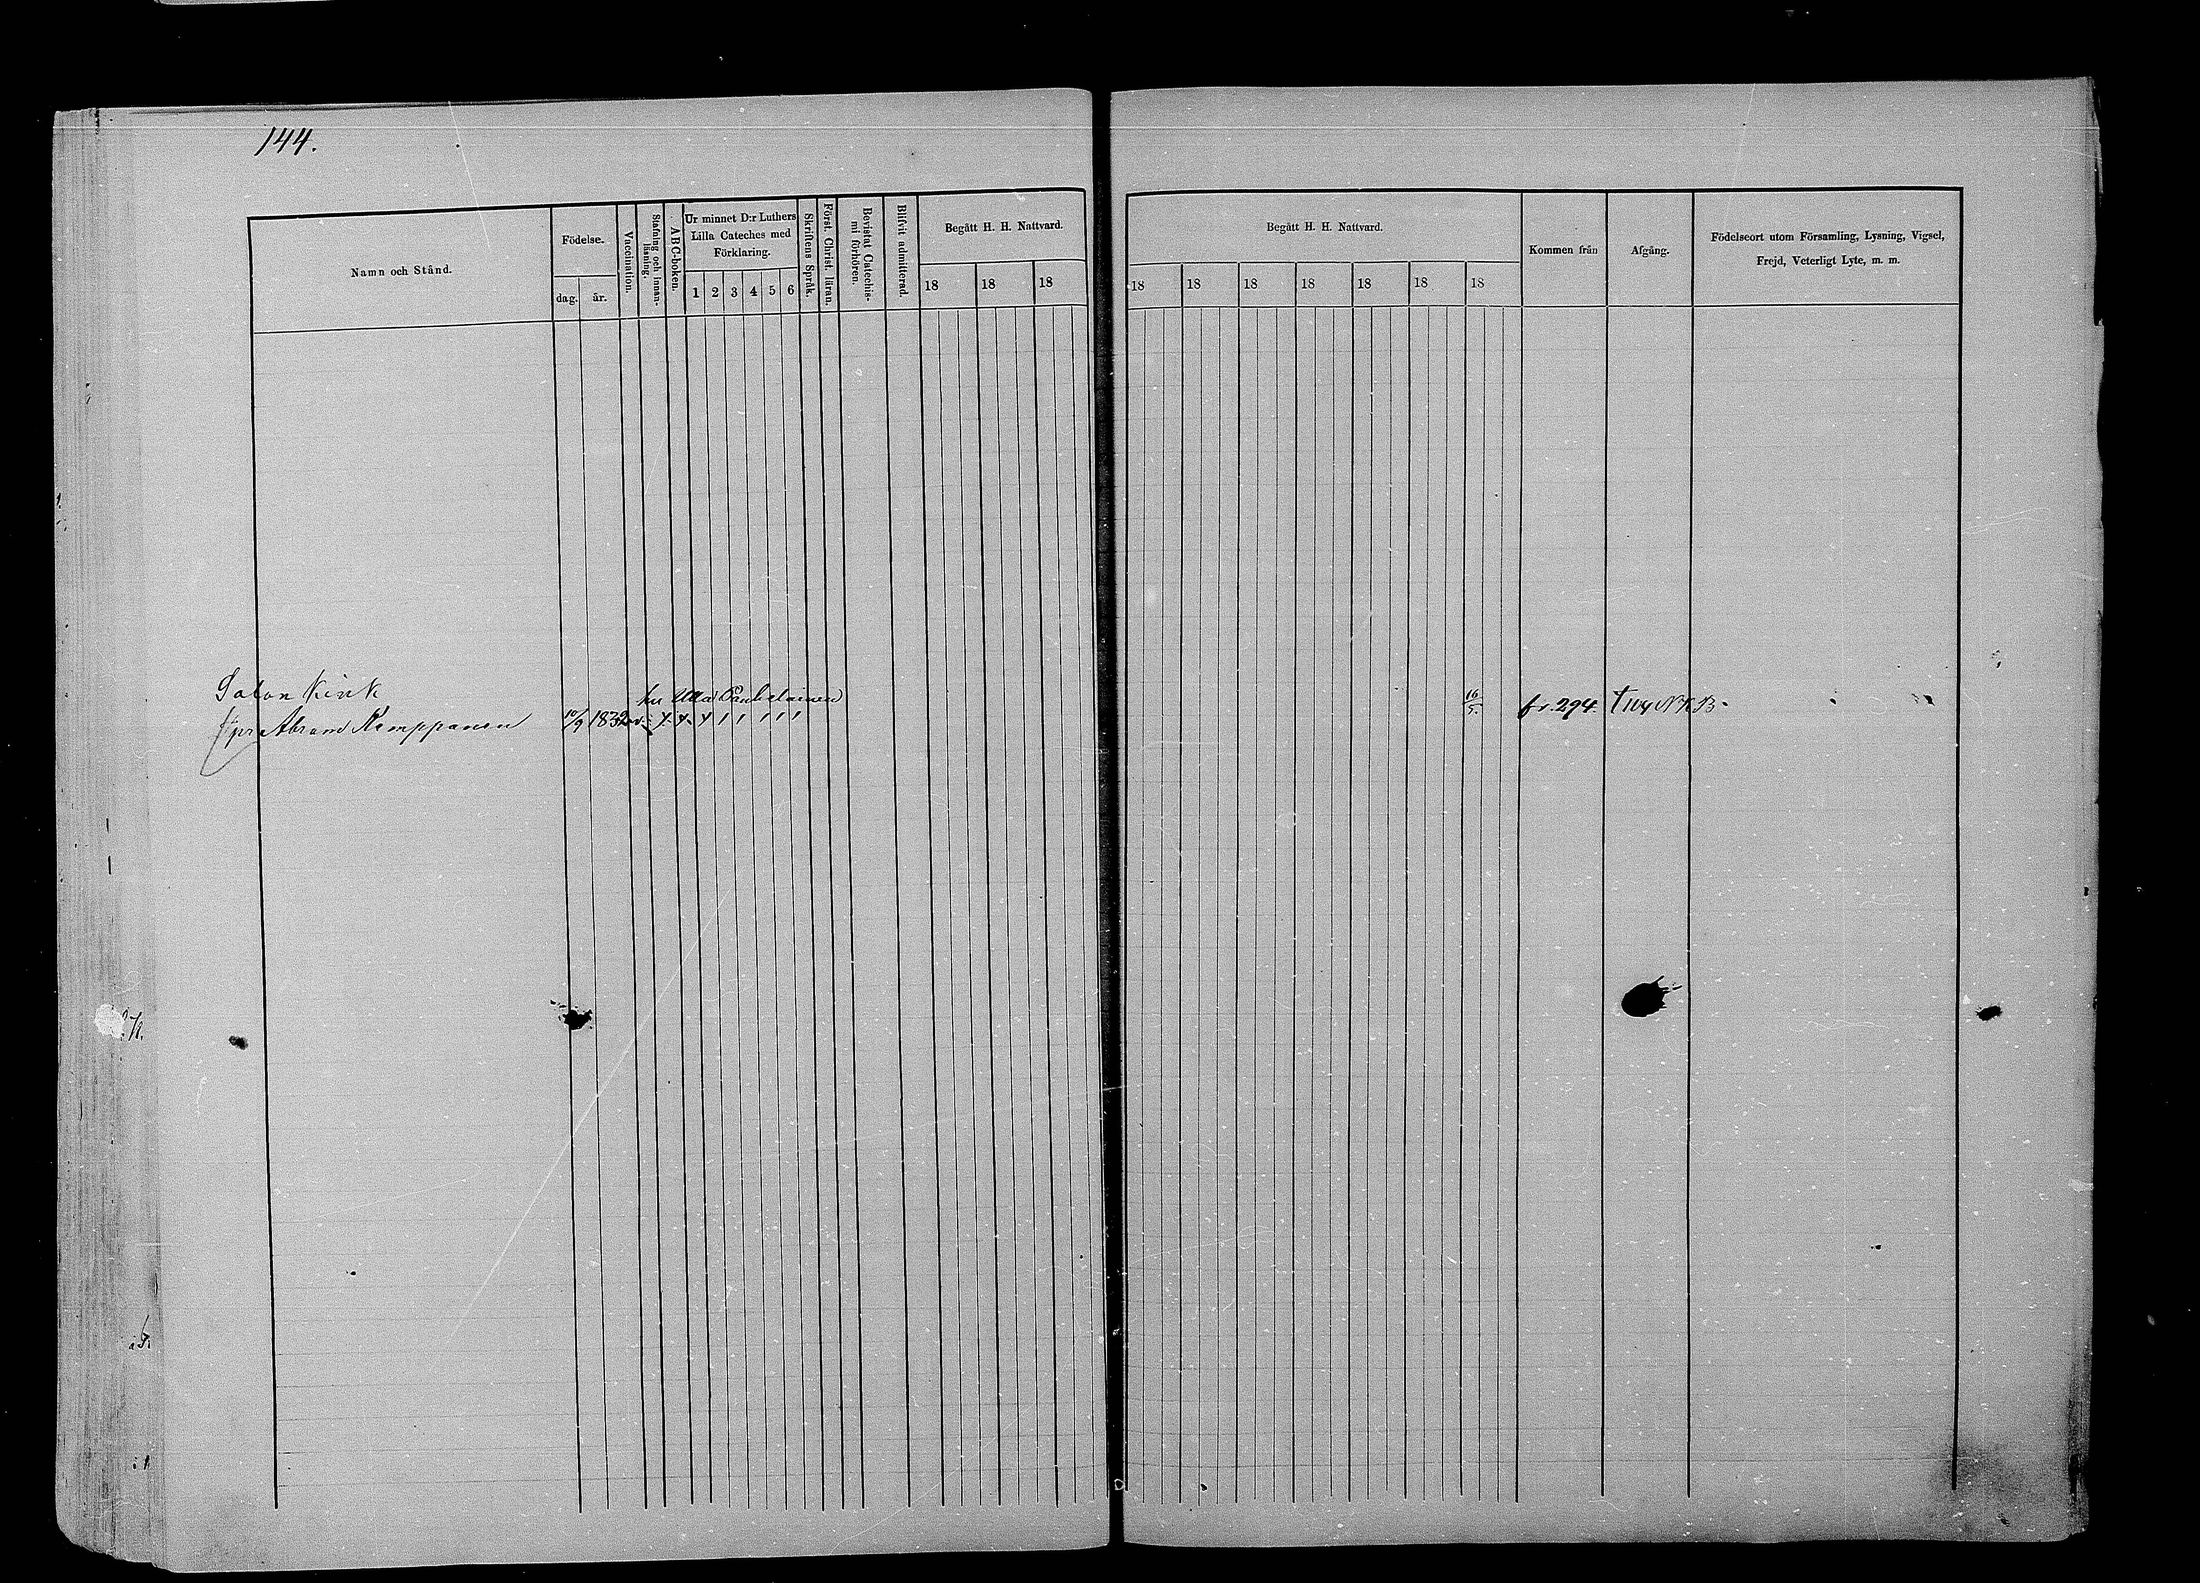 144.
Namn och Stånd.
Födelse.
dag.
år.
Vaccination.
Stafning och innan-
läsning.
ABC-boken.
Ur minnet D:r Luthers
Lilla Cateches med
Förklaring.
1 2 3 4 5 6
Skriftens Språk.
Först. Christ. läran.
Bevistat Catechis-
mi förhören.
Blifvit admitterad.
Begått H. H. Nattvard.
18 18 18
Begått H. H. Nattvard.
18 18 18 18 18 18 18
Kommen från
Afgång.
Födelseort utom Församling, Lysning, Vigsel,
Frejd, Veterligt Lyte, m. m.
hu Ulla
16/5.
Abram Kemppanen 10/9 1832 fr. 294.